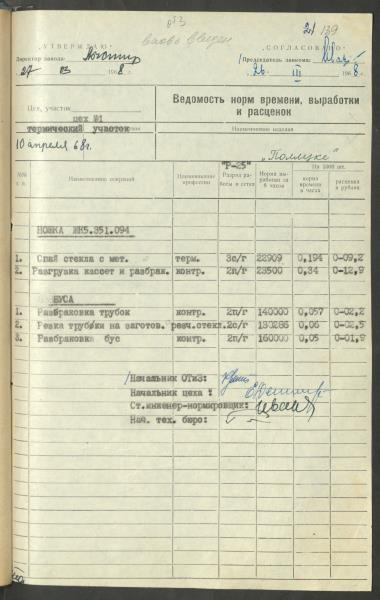 21 139
„УТВЕРЖДАЮ“
„СОГЛАСОВАНО“
Директор завода:
Председатель завкома:
27 03 1968 г.
26 III 1968 г.
Цех, участок
цех №1
термический участок
10 апреля 68г.
Ведомость норм времени, выработки
и расценок
Наименование изделия
"Р-25"
На 1000 шт.
№№ п. п.
Наименование операций
Наименование профессии
Разряд работы и сетка
Норма выработки за 8 часов
норма времени в часах
расценка в рублях
НОЖКА ЩК5.351.094
1. Спай стекла с мет. терм. 3с/г 22909 0,194 0-09,2
2. Разгрузка кассет и разбрак. контр. 2п/г 23500 0,34 0-12,9
БУСА
1. Разбраковка трубок контр. 2п/г 140000 0,057 0-02,2
2. Резка трубки на заготов. резч.стекл. 2с/г 130286 0,06 0-02,5
3. Разбраковка бус контр. 2п/г 160000 0,05 0-01,9
Начальник ОТиЗ:
Начальник цеха :
Ст.инженер-нормировщик:
Нач. тех. бюро: